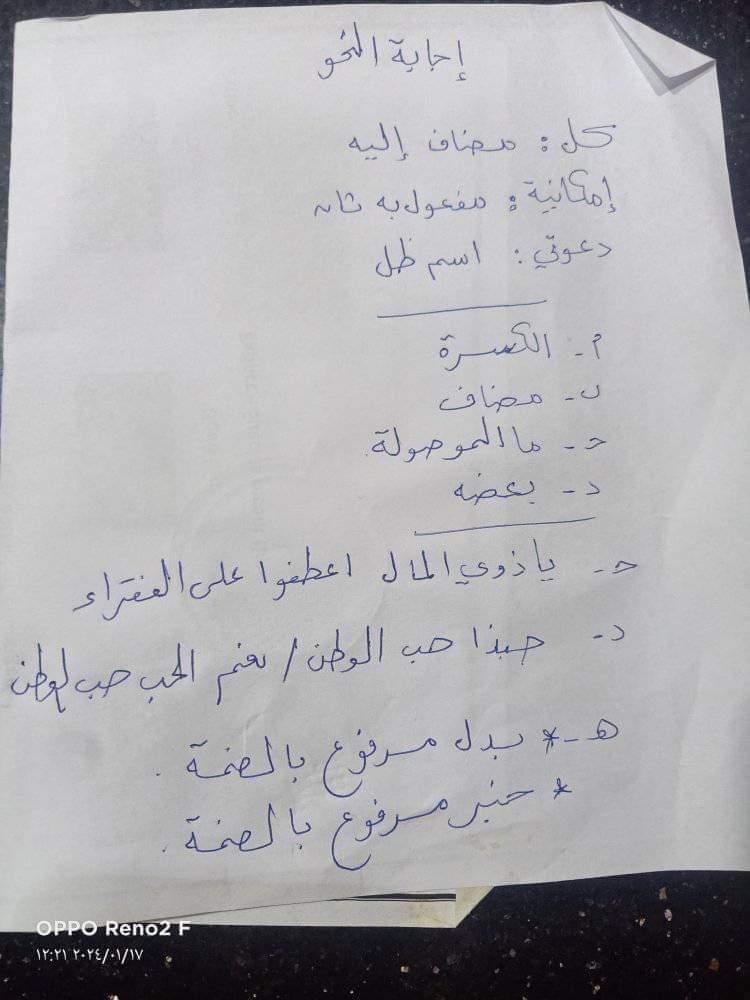 إجابة النحو
كل : مضاف إليه
إمكانية : مفعول به ثان
دعوتي : اسم ظل
أ - الكسرة
ب - مضاف
ج - ما الموصولة
د - بعضه
ج - يا ذوي المال اعطفوا على الفقراء
د - حبذا حب الوطن / نعم الحب حب الوطن
هـ - * بدل مرفوع بالضمة .
* خبر مرفوع بالضمة .
OPPO Reno2 F
٢٠٢٤/٠١/١٧ ١٢:٢١